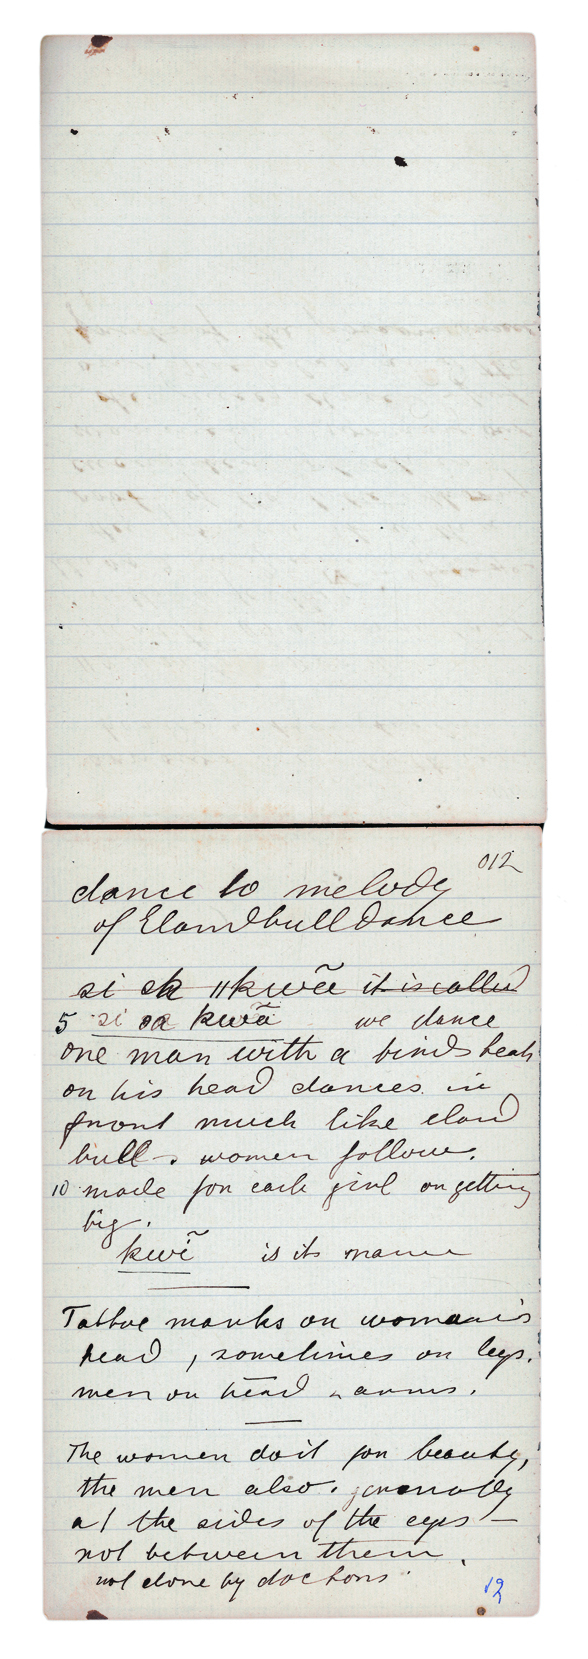 012
dance to melody
of Elandbull Dance
si ok ǁkwẽe it is called
5 si oa kwãa we dance
one man with a birds beak
on his head dances in
front much like eland
bull - women follow.
10 made for each girl on getting
big.
kwẽ is its name
Tattoe marks on woman's
head, sometimes on legs.
men on head & arms.
The women do it for beauty,
the men also. generally
at the sides of the eyes -
not between them.
not done by doctors.
12